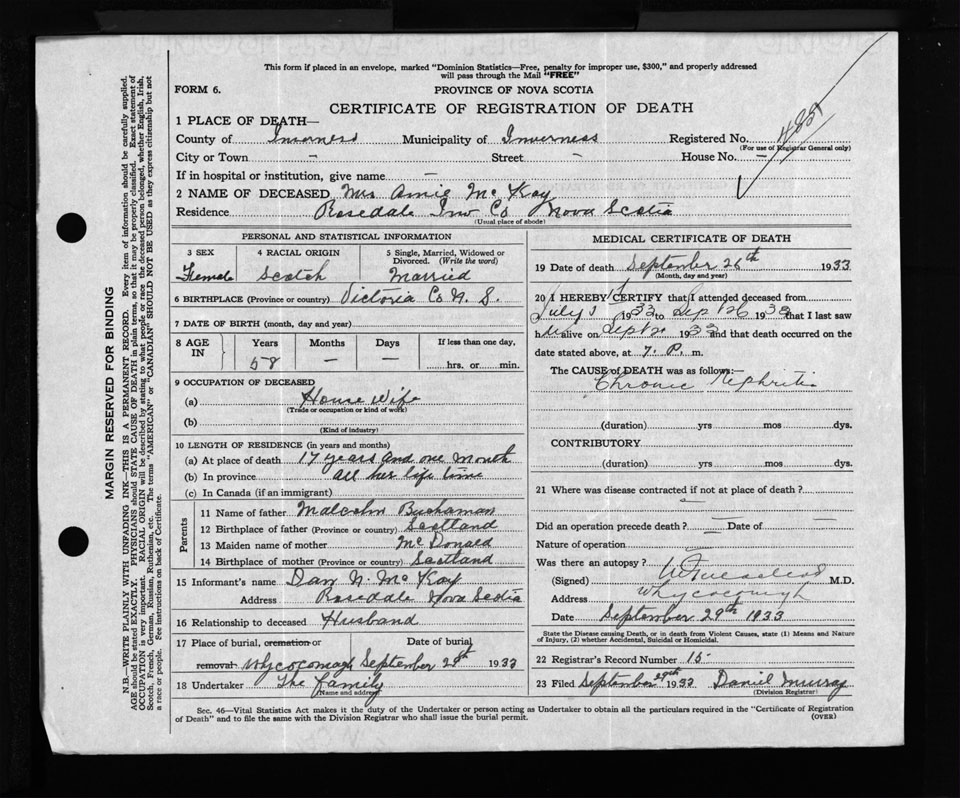 This form if placed in an envelope, marked "Dominion Statistics—Free, penalty for improper use, $300," and properly addressed
will pass through the Mail "FREE"
FORM 6.
PROVINCE OF NOVA SCOTIA
CERTIFICATE OF REGISTRATION OF DEATH
1 PLACE OF DEATH—
County of Inverness Municipality of Inverness Registered No.
(For use of Registrar General only)
City or Town - Street - House No. -
If in hospital or institution, give name -
2 NAME OF DECEASED Mrs Amie Mc Kay
Residence Rosedale Inv Co Nova Scotia
(Usual place of abode)
PERSONAL AND STATISTICAL INFORMATION
3 SEX 4 RACIAL ORIGIN 5 Single, Married, Widowed or
Divorced. (Write the word)
Female Scotch Married
6 BIRTHPLACE (Province or country) Victoria Co N. S.
7 DATE OF BIRTH (month, day and year)
8 AGE IN Years Months Days If less than one day,
58 - - hrs. or min.
9 OCCUPATION OF DECEASED
(a) House Wife
(Trade or occupation or kind of work)
(b)
(Kind of industry)
10 LENGTH OF RESIDENCE (in years and months)
(a) At place of death 17 years and one month
(b) In province all her life time
(c) In Canada (if an immigrant)
Parents
11 Name of father Malcolm Buchanan
12 Birthplace of father (Province or country) Scotland
13 Maiden name of mother McDonald
14 Birthplace of mother (Province or country) Scotland
15 Informant's name Dan N. Mc Kay
Address Rosedale Nova Scotia
16 Relationship to deceased Husband
17 Place of burial, cremation or Date of burial
removal Whycocomagh September 28th 1933
18 Undertaker The Family
(Name and address)
MEDICAL CERTIFICATE OF DEATH
19 Date of death September 26th 1933
(Month, day and year)
20 I HEREBY CERTIFY that I attended deceased from
July 1933 to Sep 26 1933 that I last saw
h alive on Sept 20 1933 and that death occurred on the
date stated above, at 7. P. m.
The CAUSE of DEATH was as follows:—
Chronic Nephritis
(duration) yrs mos dys.
CONTRIBUTORY
(duration) yrs mos dys.
21 Where was disease contracted if not at place of death?
Did an operation precede death? - Date of -
Nature of operation
Was there an autopsy?
(Signed) M.D.
Address Whycocomagh
Date September 29th 1933
State the Disease causing Death, or in death from Violent Causes, state (1) Means and Nature
of Injury, (2) whether Accidental, Suicidal or Homicidal.
22 Registrar's Record Number 15
23 Filed September 29th 1933 Daniel Murray
(Division Registrar)
Sec. 46—Vital Statistics Act makes it the duty of the Undertaker or person acting as Undertaker to obtain all the particulars required in the "Certificate of Registration
of Death" and to file the same with the Division Registrar who shall issue the burial permit.
(OVER)
MARGIN RESERVED FOR BINDING
N.B.—WRITE PLAINLY WITH UNFADING INK—THIS IS A PERMANENT RECORD. Every item of information should be carefully supplied.
AGE should be stated EXACTLY. PHYSICIANS should STATE CAUSE OF DEATH in plain terms, so that it may be properly classified. Exact statement of
OCCUPATION is very important. RACIAL ORIGIN will be described by stating to what people or race the deceased person belonged, whether English, Irish,
Scotch, French, German, Russian, Ruthenian, etc. The terms "AMERICAN" or "CANADIAN" SHOULD NOT BE USED as they express citizenship but not
a race or people. See instructions on back of Certificate.